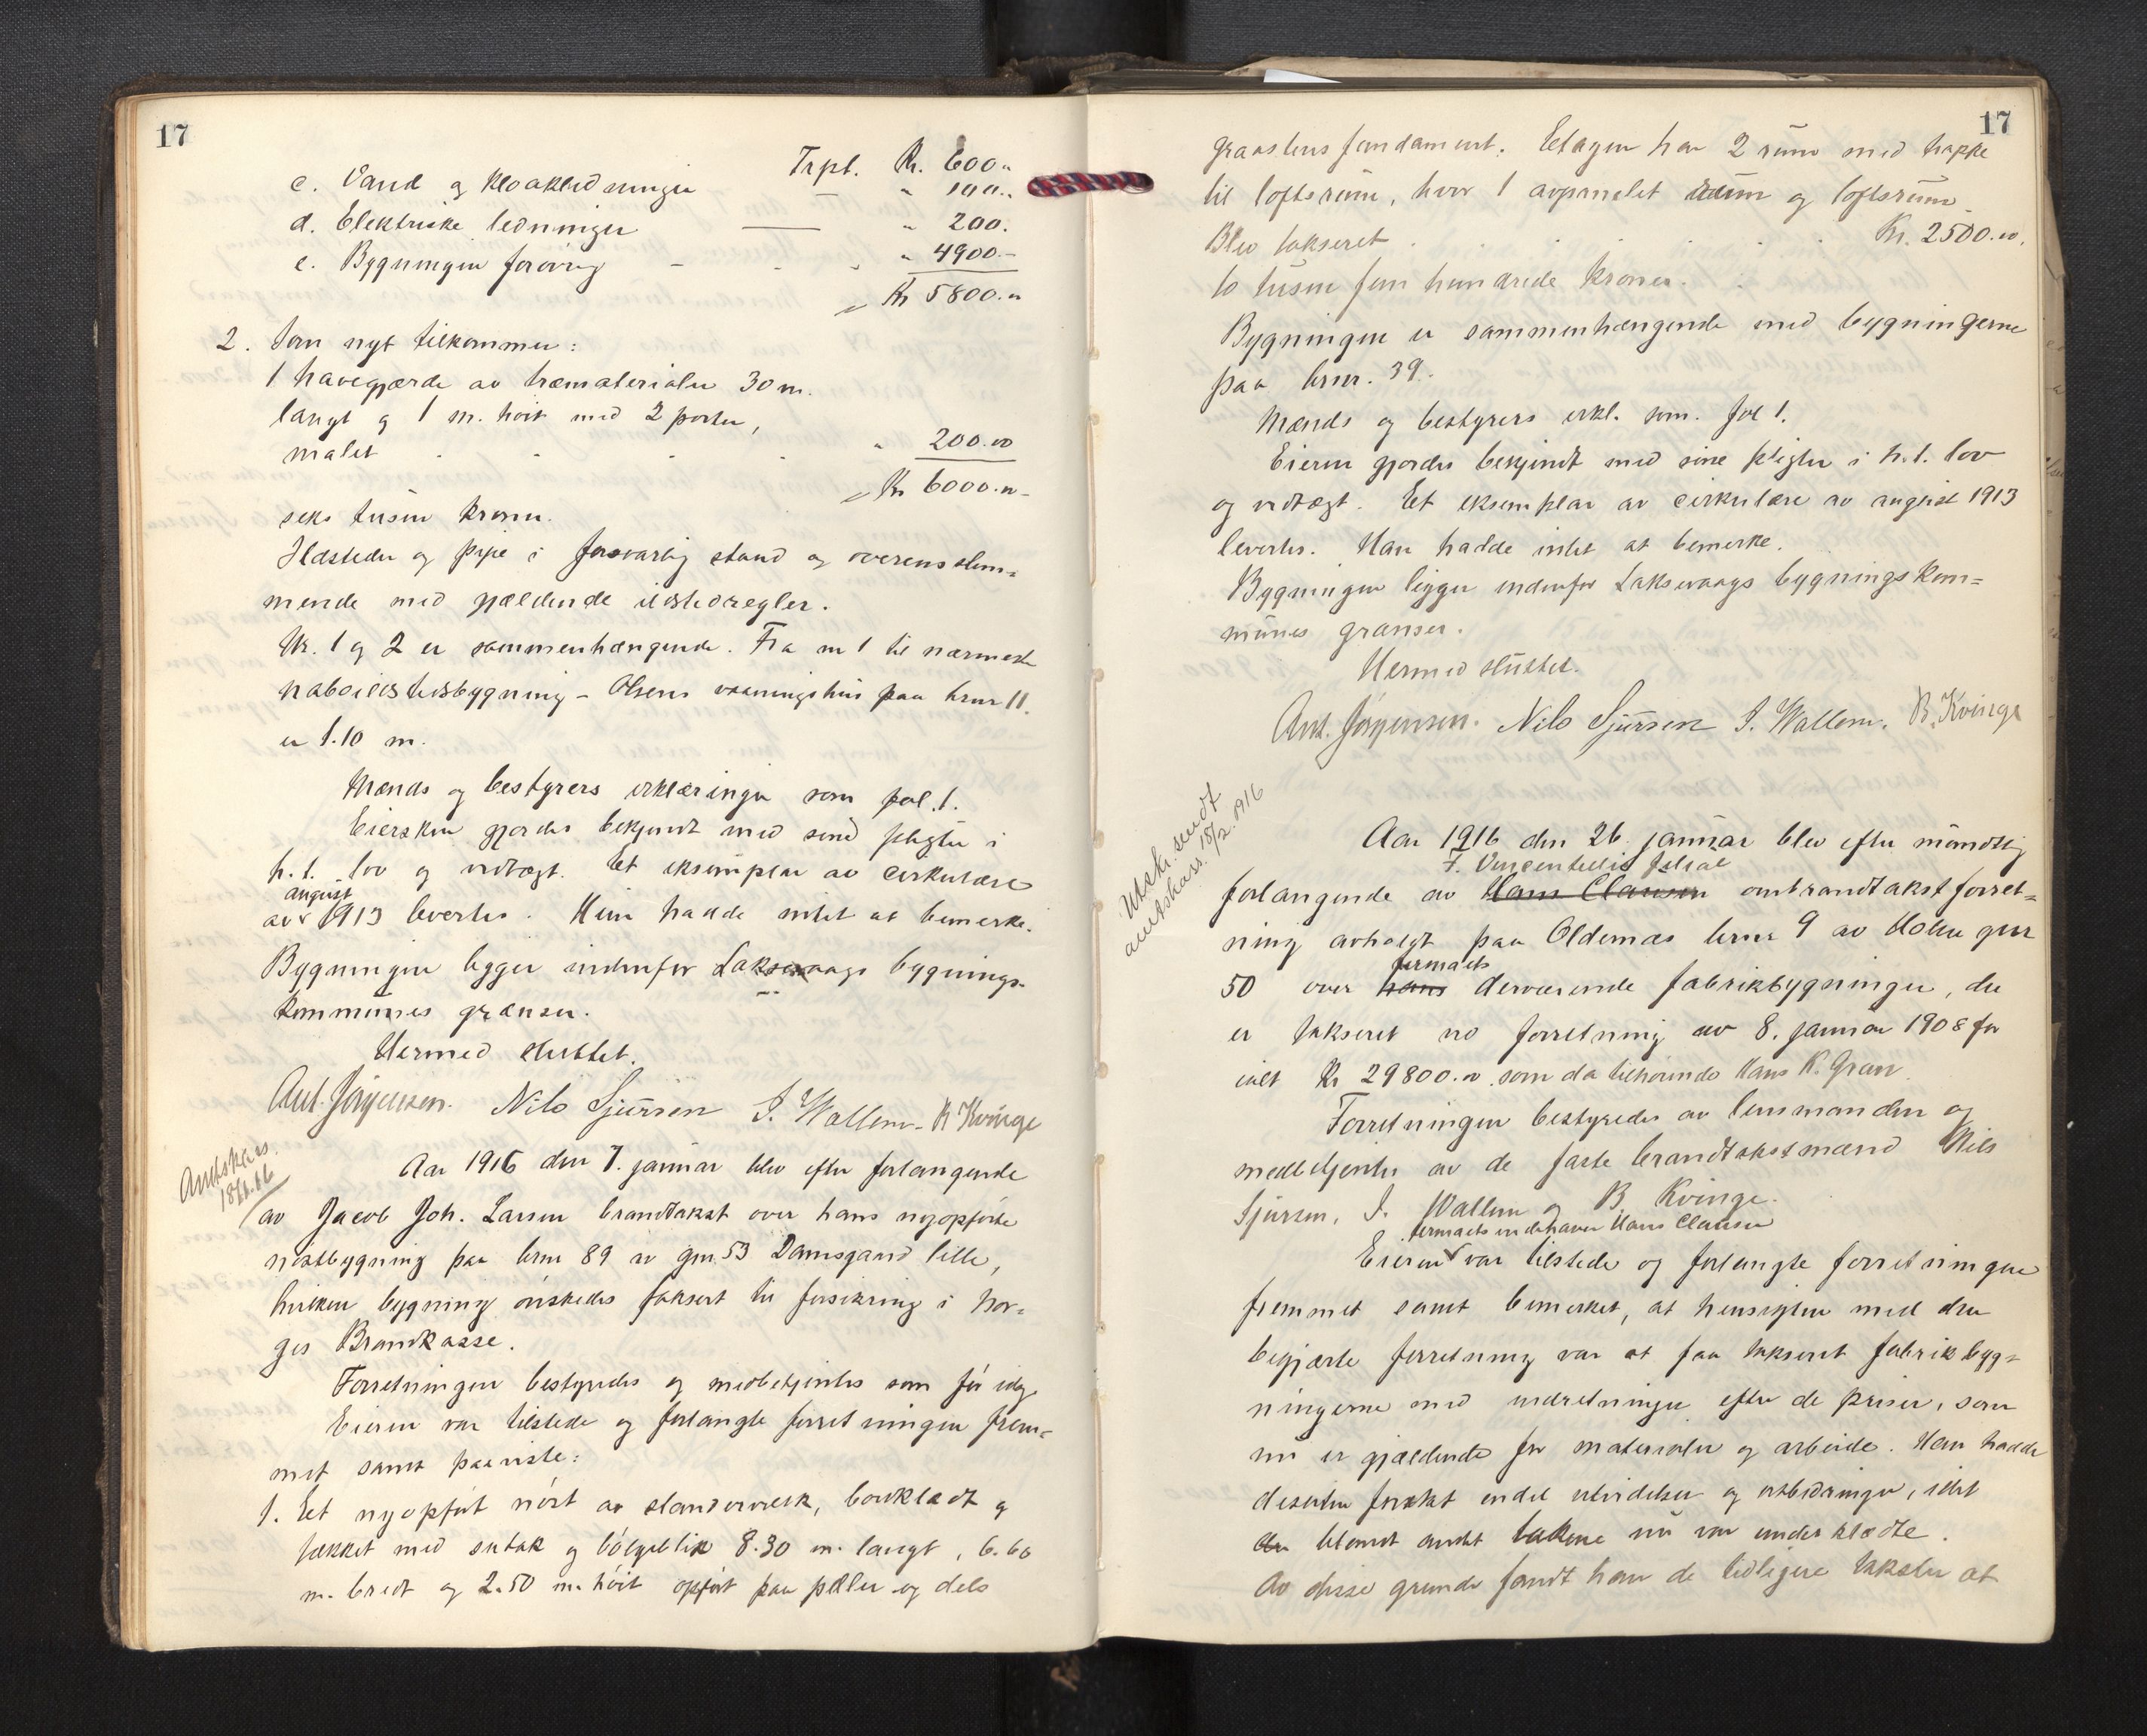 17
Trpt. Kr. 600.
c. Vand og kloakledninger — " 100..
d. Elektriske ledninger — " 200.
e. Bygningen forøvrig - - " " 4900.-
Kr 5800.
2. Som nyt tilkommer:
1 havegjærde av træmaterialer 30 m.
langt og 1 m. høit med 2 porter,
malet . . . . " 200.00
Kr 6000.
seks tusen kroner.
Ildsteder og pipe i forsvarlig stand og overensstem=
mende med gjældende ildstedregler.
Nr. 1 og 2 er sammenhængende. Fra nr 1 til nærmeste
naboildstedsbygning - Olsens vaaningshus paa brnr 11.
er 1.10 m.
Mænds og bestyrers erklæringer som fol. 1.
Eiersken gjordes bekjendt med sine pligter i
h.t. lov og vedtægt. Et eksemplar av cirkulære
august
av 1913 levertes. Hun hadde intet at bemerke.
Bygningen ligger indenfor Laksevaags bygnings-
kommunes grænser.
Hermed sluttet.
Ant. Jørgensen. Nils Sjursen I. Wallem. B Kvinge
Amtskars.
18/1.16
Aar 1916 den 7. januar blev efter forlangende
av Jacob Joh. Larsen brandtakst over hans nyopførte
nøstbygning paa brnr 89 av gnr 53 Damsgaard lille,
hvilken bygning ønskedes taksert til forsikring i Nor=
ges Brandkasse.
Forretningen bestyredes og medbetjentes som før idag.
Eieren var tilstede og forlangte forretningen frem=
met samt paaviste:
1. Et nyopført nøst av standerverk, bordklædt og
tækket med sutak og bølgeblik 8.30 m. langt, 6.60
m. bredt og 2.50 m. høit opført paa pæler og dels
17
graastens fundament. Etagen har 2 rum med trappe
til loftsrum, hvor 1 avpanelet rum og loftsrum
Blev taksert . . . . . . Kr. 2500.00.
to tusen fem hundrede kroner.
Bygningen er sammenhængende med bygningerne
paa brnr. 39.
Mænds og bestyrers erkl. som fol 1.
Eieren gjordes bekjendt med sine pligter i h.t. lov
og vedtægt. Et eksemplar av cirkulære av august 1913
levertes. Han hadde intet at bemerke.
Bygningen ligger indenfor Laksevaags bygningskom=
munes grænser.
Hermed sluttet.
Ant. Jørgensen. Nils Sjursen I. Wallem. B. Kvinge
Utskr. sendt
amtskass. 18/2. 1916
Aar 1916 den 26. januar blev efter mundtlig
filial
forlangende av Hans Clausen ombrandtakstforret=
ning avholdt paa Oldernæs brnr 9 av Holen gnr
firmaets
50 over hans derværende fabrikbygninger, der
er takseret ved forretning av 8. januar 1908 for
ialt Kr 29800.00 som da tilhørende Hans K. Gran.
Forretningen bestyredes av lensmanden og
medbetjentes av de faste brandtakstmænd Nils
Sjursen, I. Wallem og B Kvinge.
firmaets indehaver Hans Clausen
Eieren var tilstede og forlangte forretningen
fremmet samt bemerket, at hensigten med den
begjærte forretning var at faa takseret fabrikbyg=
ningerne med indretninger efter de priser, som
nu er gjældende for materialer og arbeide. Han hadde
desuten foretat endel utvidelser og utbedringer, idet
blandt andet takene nu var underklædte.
Av disse grunde fandt han de tidligere takster at